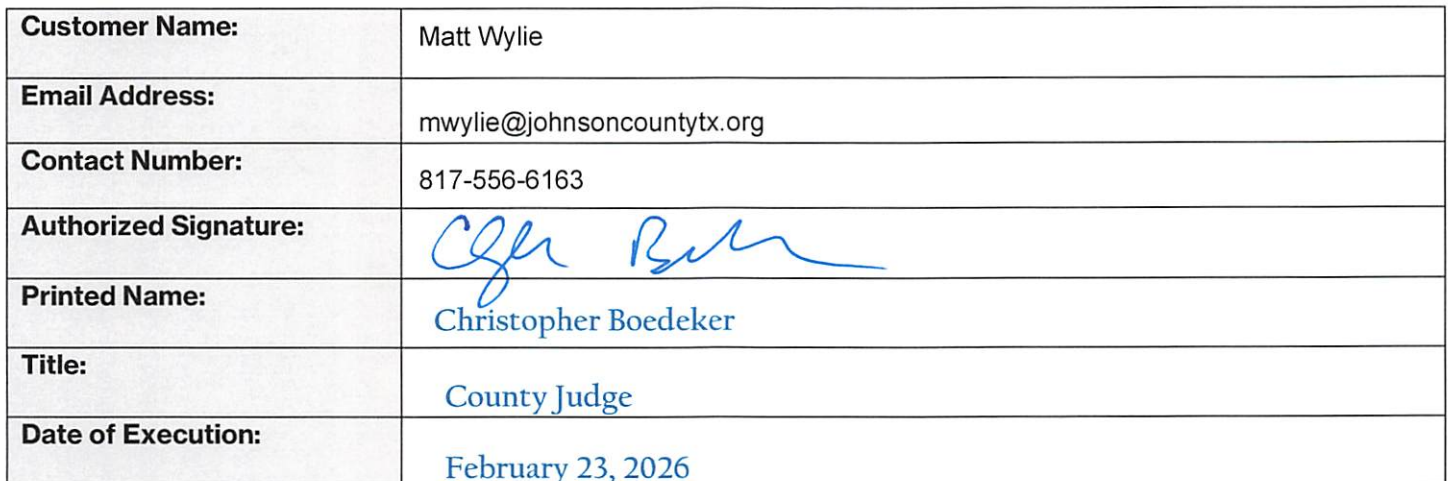 Customer Name: Matt Wylie
Email Address: mwylie@johnsoncountytx.org
Contact Number: 817-556-6163
Authorized Signature:
Printed Name: Christopher Boedeker
Title: County Judge
Date of Execution: February 23, 2026